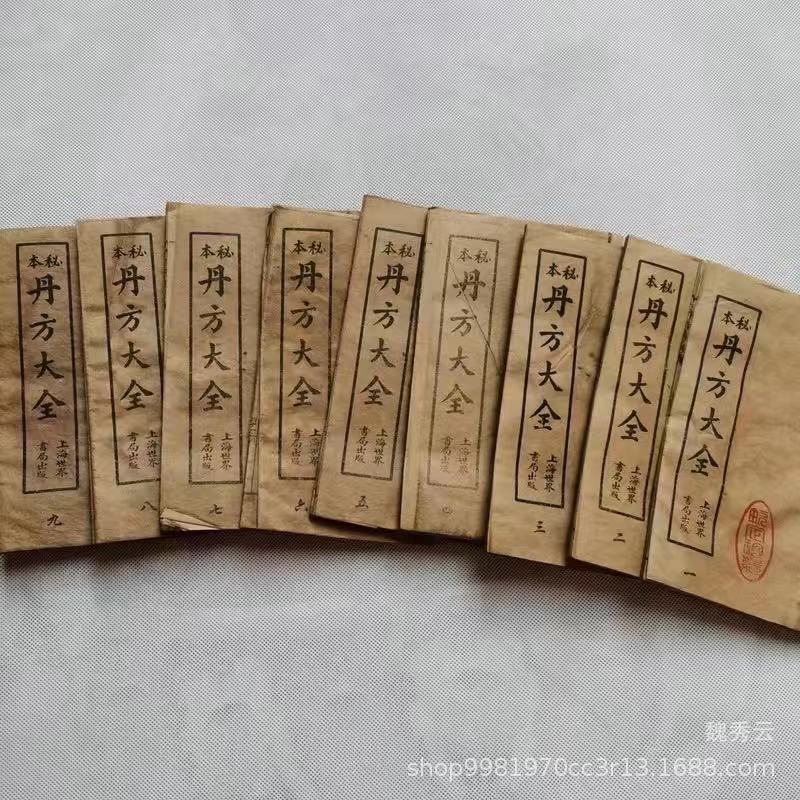 秘本
丹方大全
上海世界
書局出版
一
秘本
丹方大全
上海世界
書局出版
二
秘本
丹方大全
上海世界
書局出版
三
秘本
丹方大全
上海世界
書局出版
四
秘本
丹方大全
上海世界
書局出版
五
秘本
丹方大全
上海世界
書局出版
六
秘本
丹方大全
上海世界
書局出版
七
秘本
丹方大全
上海世界
書局出版
八
秘本
丹方大全
上海世界
書局出版
九
魏秀云
shop9981970cc3r13.1688.com